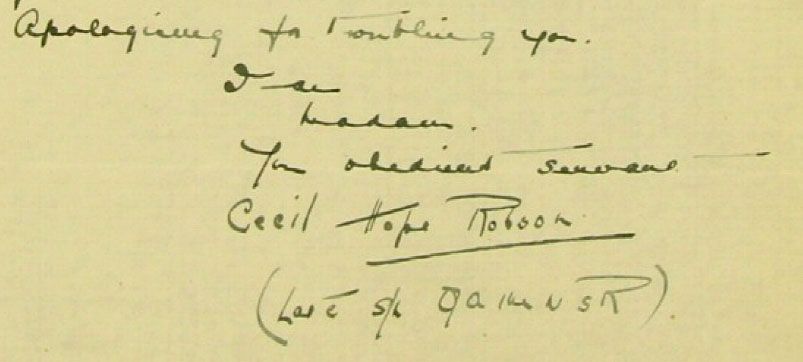 Apologising for troubling you.
I am
Madam.
Your obedient servant
Cecil Hope Robson
(Late S/N QAIMNSR)